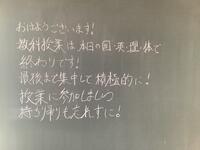 おはようございます！
教科授業は本日の国・英・理・体で
終わりです！
最後まで集中して積極的に！
授業に参加しよう
持ち帰りも忘れずに！